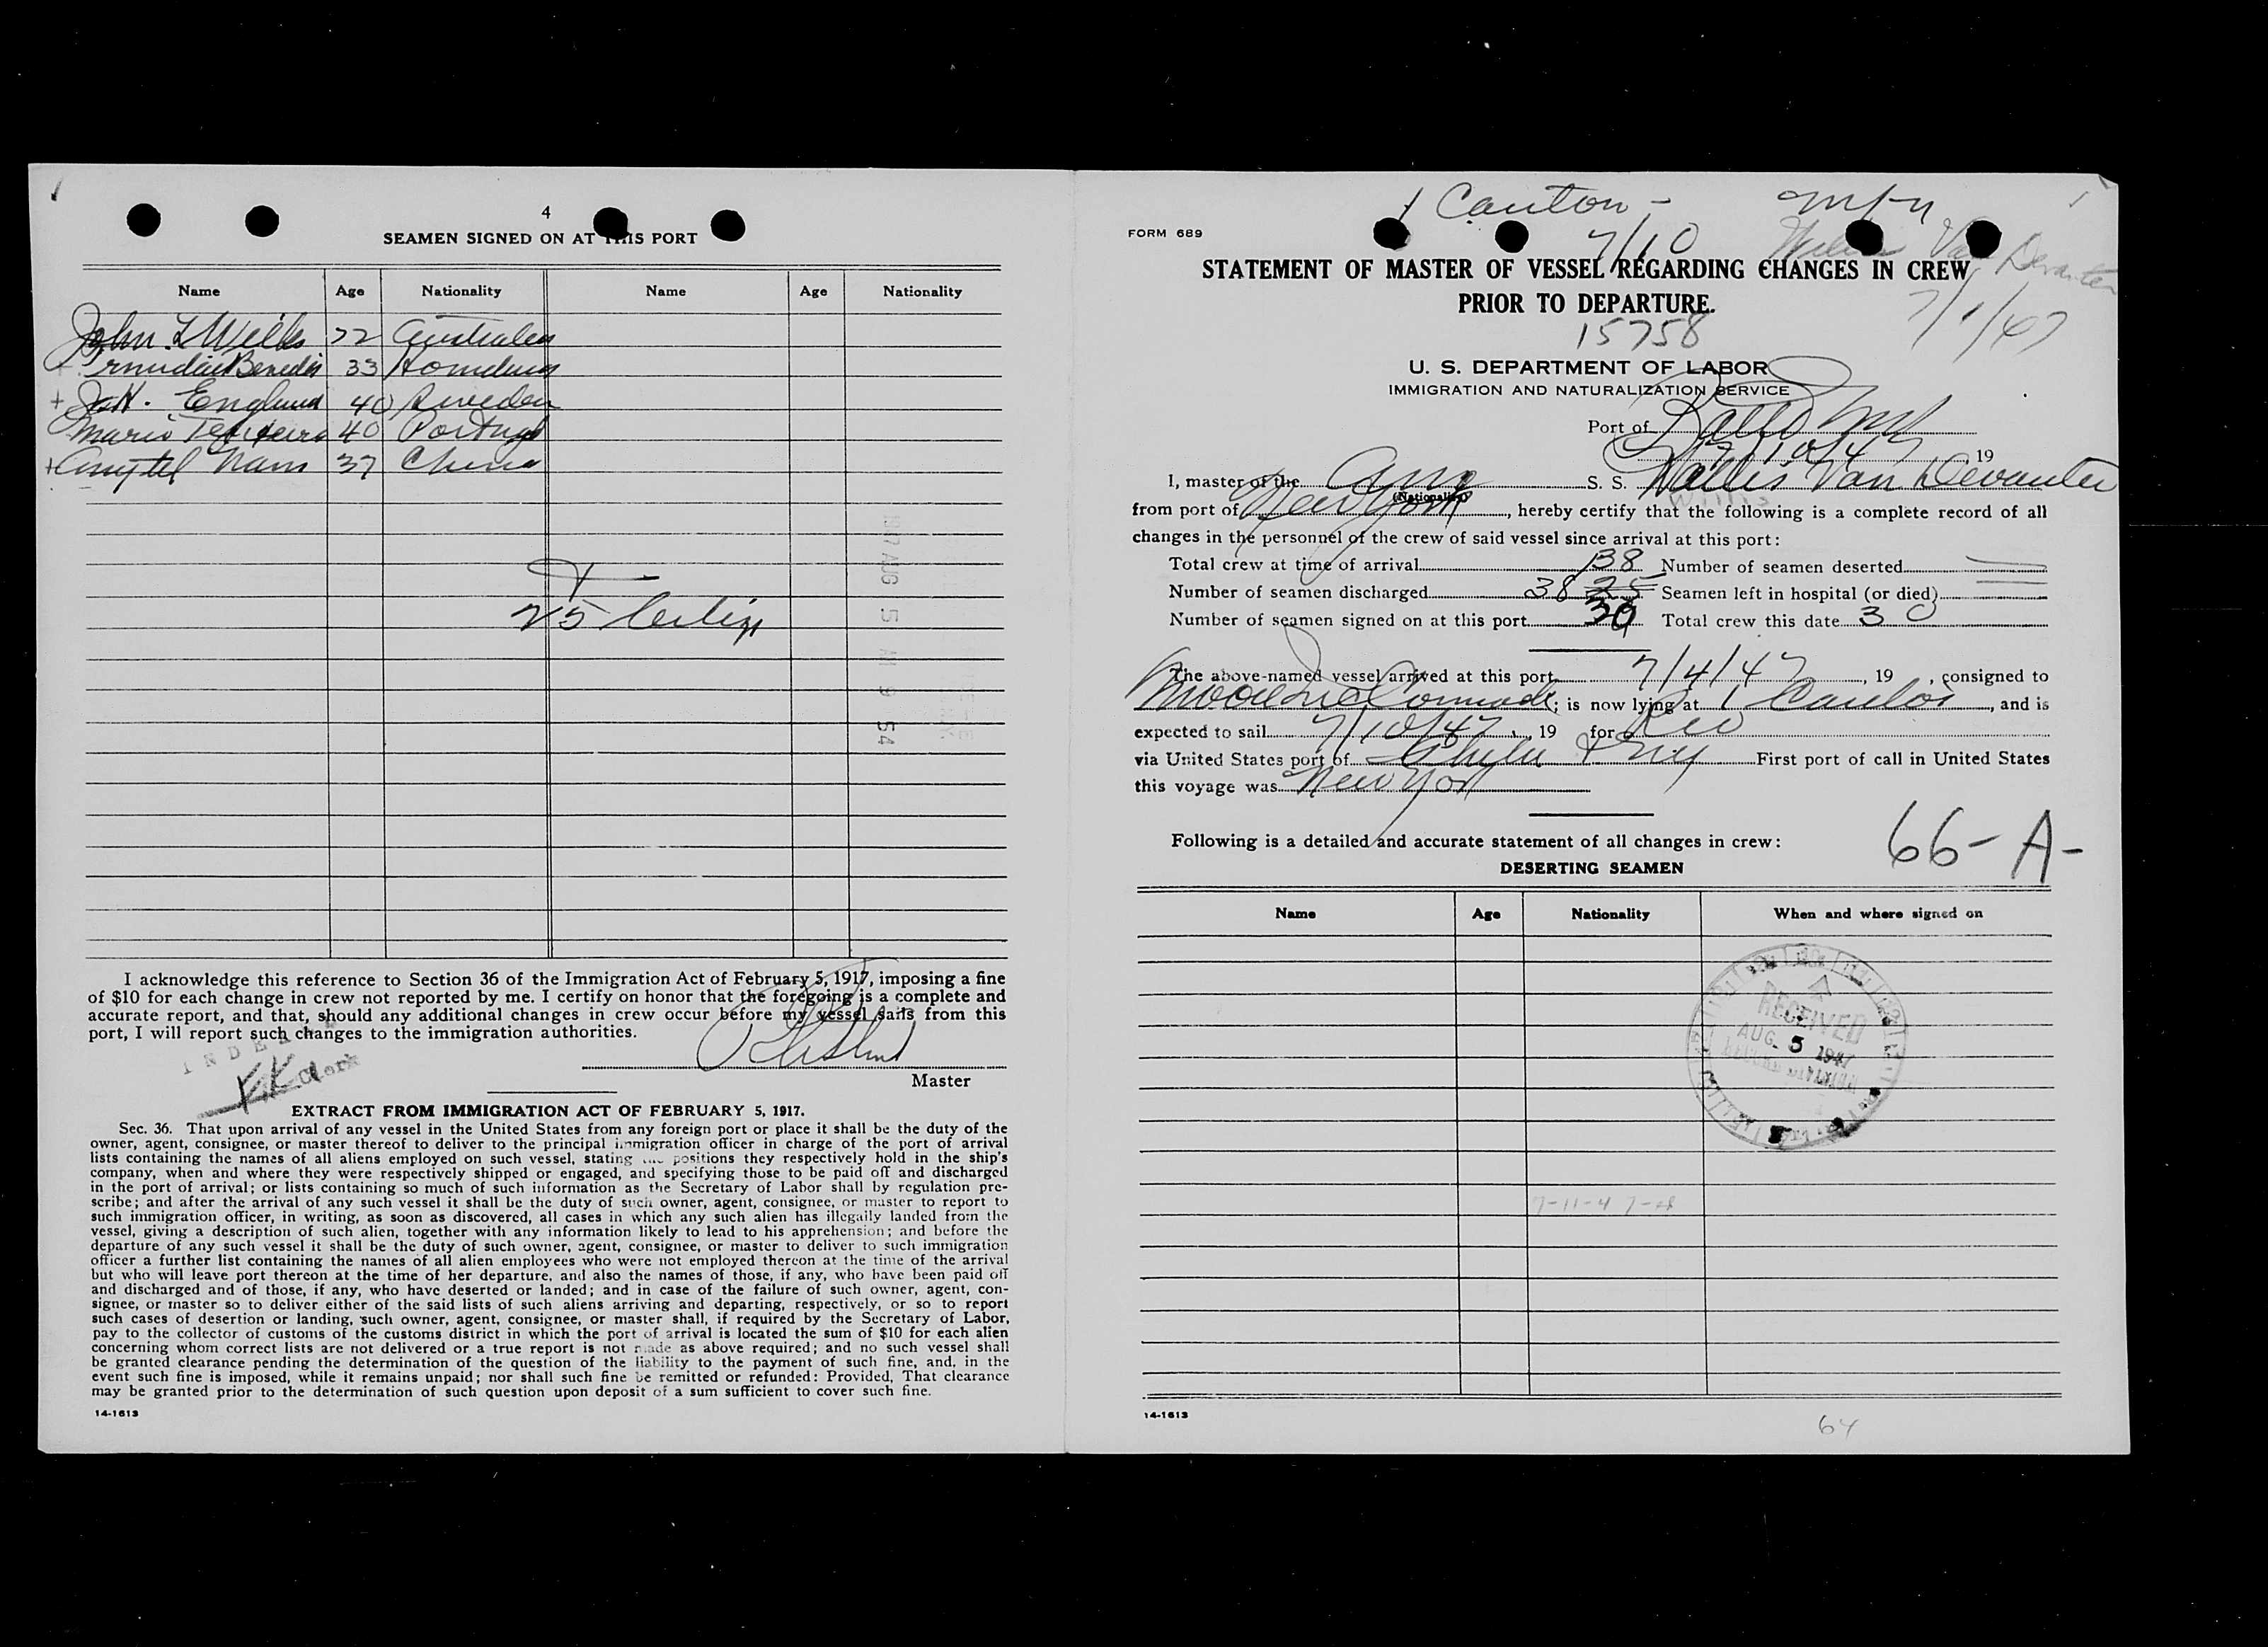 4
SEAMEN SIGNED ON AT THIS PORT
Name Age Nationality Name Age Nationality
John Wells 22 Australia
Benedis 33 Honduras
+ England 40 Sweden
Mario Teixeira 40 Portugal
+ 37 China
25
1947 AUG 5 AM 9 54
I acknowledge this reference to Section 36 of the Immigration Act of February 5, 1917, imposing a fine
of $10 for each change in crew not reported by me. I certify on honor that the foregoing is a complete and
accurate report, and that, should any additional changes in crew occur before my vessel sails from this
port, I will report such changes to the immigration authorities.
Clerk
Master
EXTRACT FROM IMMIGRATION ACT OF FEBRUARY 5, 1917.
Sec. 36. That upon arrival of any vessel in the United States from any foreign port or place it shall be the duty of the
owner, agent, consignee, or master thereof to deliver to the principal immigration officer in charge of the port of arrival
lists containing the names of all aliens employed on such vessel, stating the positions they respectively hold in the ship's
company, when and where they were respectively shipped or engaged, and specifying those to be paid off and discharged
in the port of arrival; or lists containing so much of such information as the Secretary of Labor shall by regulation pre-
scribe; and after the arrival of any such vessel it shall be the duty of such owner, agent, consignee, or master to report to
such immigration officer, in writing, as soon as discovered, all cases in which any such alien has illegally landed from the
vessel, giving a description of such alien, together with any information likely to lead to his apprehension; and before the
departure of any such vessel it shall be the duty of such owner, agent, consignee, or master to deliver to such immigration
officer a further list containing the names of all alien employees who were not employed thereon at the time of the arrival
but who will leave port thereon at the time of her departure, and also the names of those, if any, who have been paid off
and discharged and of those, if any, who have deserted or landed; and in case of the failure of such owner, agent, con-
signee, or master so to deliver either of the said lists of such aliens arriving and departing, respectively, or so to report
such cases of desertion or landing, such owner, agent, consignee, or master shall, if required by the Secretary of Labor,
pay to the collector of customs of the customs district in which the port of arrival is located the sum of $10 for each alien
concerning whom correct lists are not delivered or a true report is not made as above required; and no such vessel shall
be granted clearance pending the determination of the question of the liability to the payment of such fine, and, in the
event such fine is imposed, while it remains unpaid; nor shall such fine be remitted or refunded: Provided, That clearance
may be granted prior to the determination of such question upon deposit of a sum sufficient to cover such fine.
14-1613
1 Canton -
FORM 689
7/10
Willis Van Devanter
STATEMENT OF MASTER OF VESSEL REGARDING CHANGES IN CREW
PRIOR TO DEPARTURE.
7/1/47
15758
U. S. DEPARTMENT OF LABOR
IMMIGRATION AND NATURALIZATION SERVICE
Port of Balto Md
7/10/47 19
I, master of the Am S. S. Wallis Van Devanter
(Nationality) Willis
from port of New York, hereby certify that the following is a complete record of all
changes in the personnel of the crew of said vessel since arrival at this port:
Total crew at time of arrival 38 Number of seamen deserted
Number of seamen discharged 38 25 Seamen left in hospital (or died)
Number of seamen signed on at this port 30 Total crew this date 30
The above-named vessel arrived at this port 7/4/47, 19 , consigned to
Moore McCormack; is now lying at 1 Canton, and is
expected to sail 7/10/47, 19 for Rio
via United States port of First port of call in United States
this voyage was New York
Following is a detailed and accurate statement of all changes in crew:
66-A-
DESERTING SEAMEN
Name Age Nationality When and where signed on
RECEIVED
AUG. 5 1947
14-1613
64